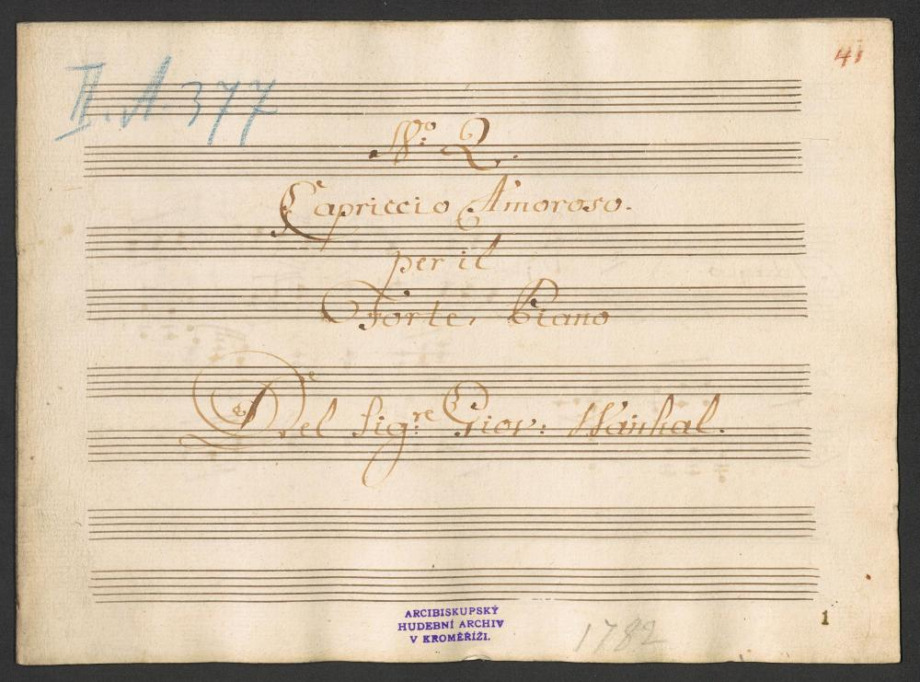 II. A. 377
41
No: 2.
Capriccio Amoroso.
per il
Forte, Piano
Del Sigre: Giov: Wanhal.
ARCIBISKUPSKÝ
HUDEBNÍ ARCHIV
V KROMĚŘÍŽI.
1782
1